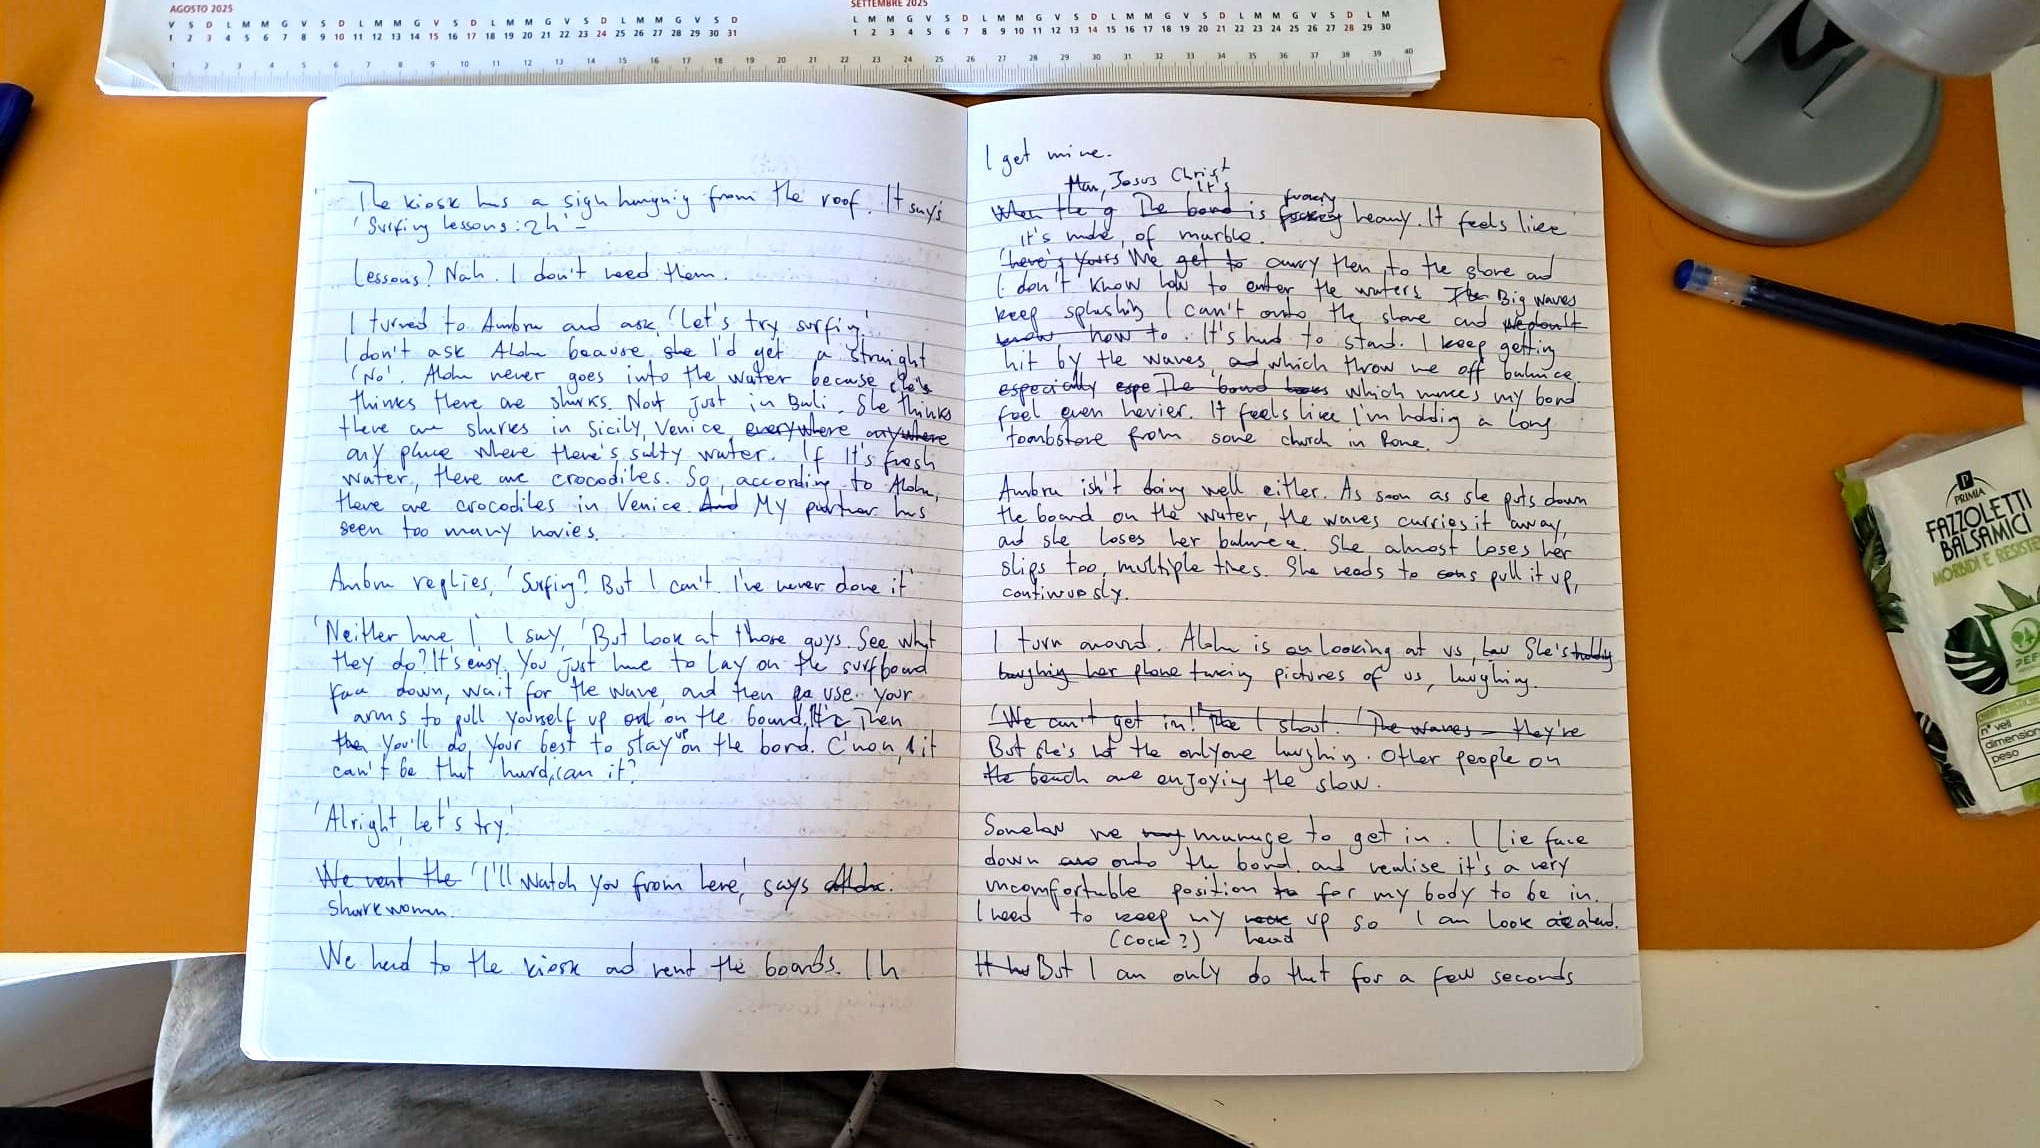 AGOSTO 2025
V S D L M M G V S D L M M G V S D L M M G V S D L M M G V S D
1 2 3 4 5 6 7 8 9 10 11 12 13 14 15 16 17 18 19 20 21 22 23 24 25 26 27 28 29 30 31
SETTEMBRE 2025
L M M G V S D L M M G V S D L M M G V S D L M M G V S D L M
1 2 3 4 5 6 7 8 9 10 11 12 13 14 15 16 17 18 19 20 21 22 23 24 25 26 27 28 29 30
1 2 3 4 5 6 7 8 9 10 11 12 13 14 15 16 17 18 19 20 21 22 23 24 25 26 27 28 29 30 31 32 33 34 35 36 37 38 39 40
The kiosk has a sign hungnig from the roof. It says
'Surfing lessons: 2h' –
Lessons? Nah. I don't need them.
I turned to Ambra and ask, 'Let's try surfing.'
I don't ask Aloha beause she I'd get a straight
'No'. Aloha never goes into the water because she's
thinks there are sharks. Not just in Bali. She thinks
there are sharks in Sicily, Venice, everywhere anywhere
any place where there's salty water. If it's fresh
water, there are crocodiles. So, according to Aloha,
there are crocodiles in Venice. And My partner has
seen too many movies.
Ambra replies, 'Surfing? But I can't. I've never done it'
'Neither have I,' I say, 'But look at those guys. See what
they do? It's easy. You just have to lay on the surfboard
face down, wait for the wave, and then pa use your
arms to pull yourself up out on the board. It's Then
then you'll do your best to stay up on the bord. C'mon, it
can't be that hard, can it?
'Alright, Let's try.'
We rent the 'I'll watch you from here,' says Aloha.
sharkwoman.
We head to the kiosk and rent the boards. 1h
I get mine.
Man, Jesus Christ
It's fucking
When the g The board is fucking heavy. It feels like
it's made of marble.
'here's yours We get to carry them to the shore and
I don't know how to enter the waters. The Big waves
keep splashing I can't onto the shore and we don't
know how to. It's hard to stand. I keep getting
hit by the waves, and which throw me off balance,
especially espe The board was which makes my bord
feel even hevier. It feels like I'm holding a long
tombstone from some church in Rome.
Ambra isn't doing well either. As soon as she puts down
the board on the water, the waves carries it away,
and she loses her balance. She almost loses her
slips too, multiple times. She needs to cons pull it up,
continuosly.
I turn around. Aloha is on looking at us, law She's holding
laughing her phone taking pictures of us, laughing.
'We can't get in!' The I shout. 'The waves – they're
But she's not the only one laughing. Other people on
the beach are enjoying the show.
Somehow we may manage to get in. I lie face
down and onto the bord and realise it's a very
uncomfortable position to for my body to be in.
I need to keep my neck up so I can look ahead.
(cock?) head
It has But I can only do that for a few seconds
P
PRIMIA
FAZZOLETTI
BALSAMICI
MORBIDI E RESIST
PEF
n° veli
dimension
peso